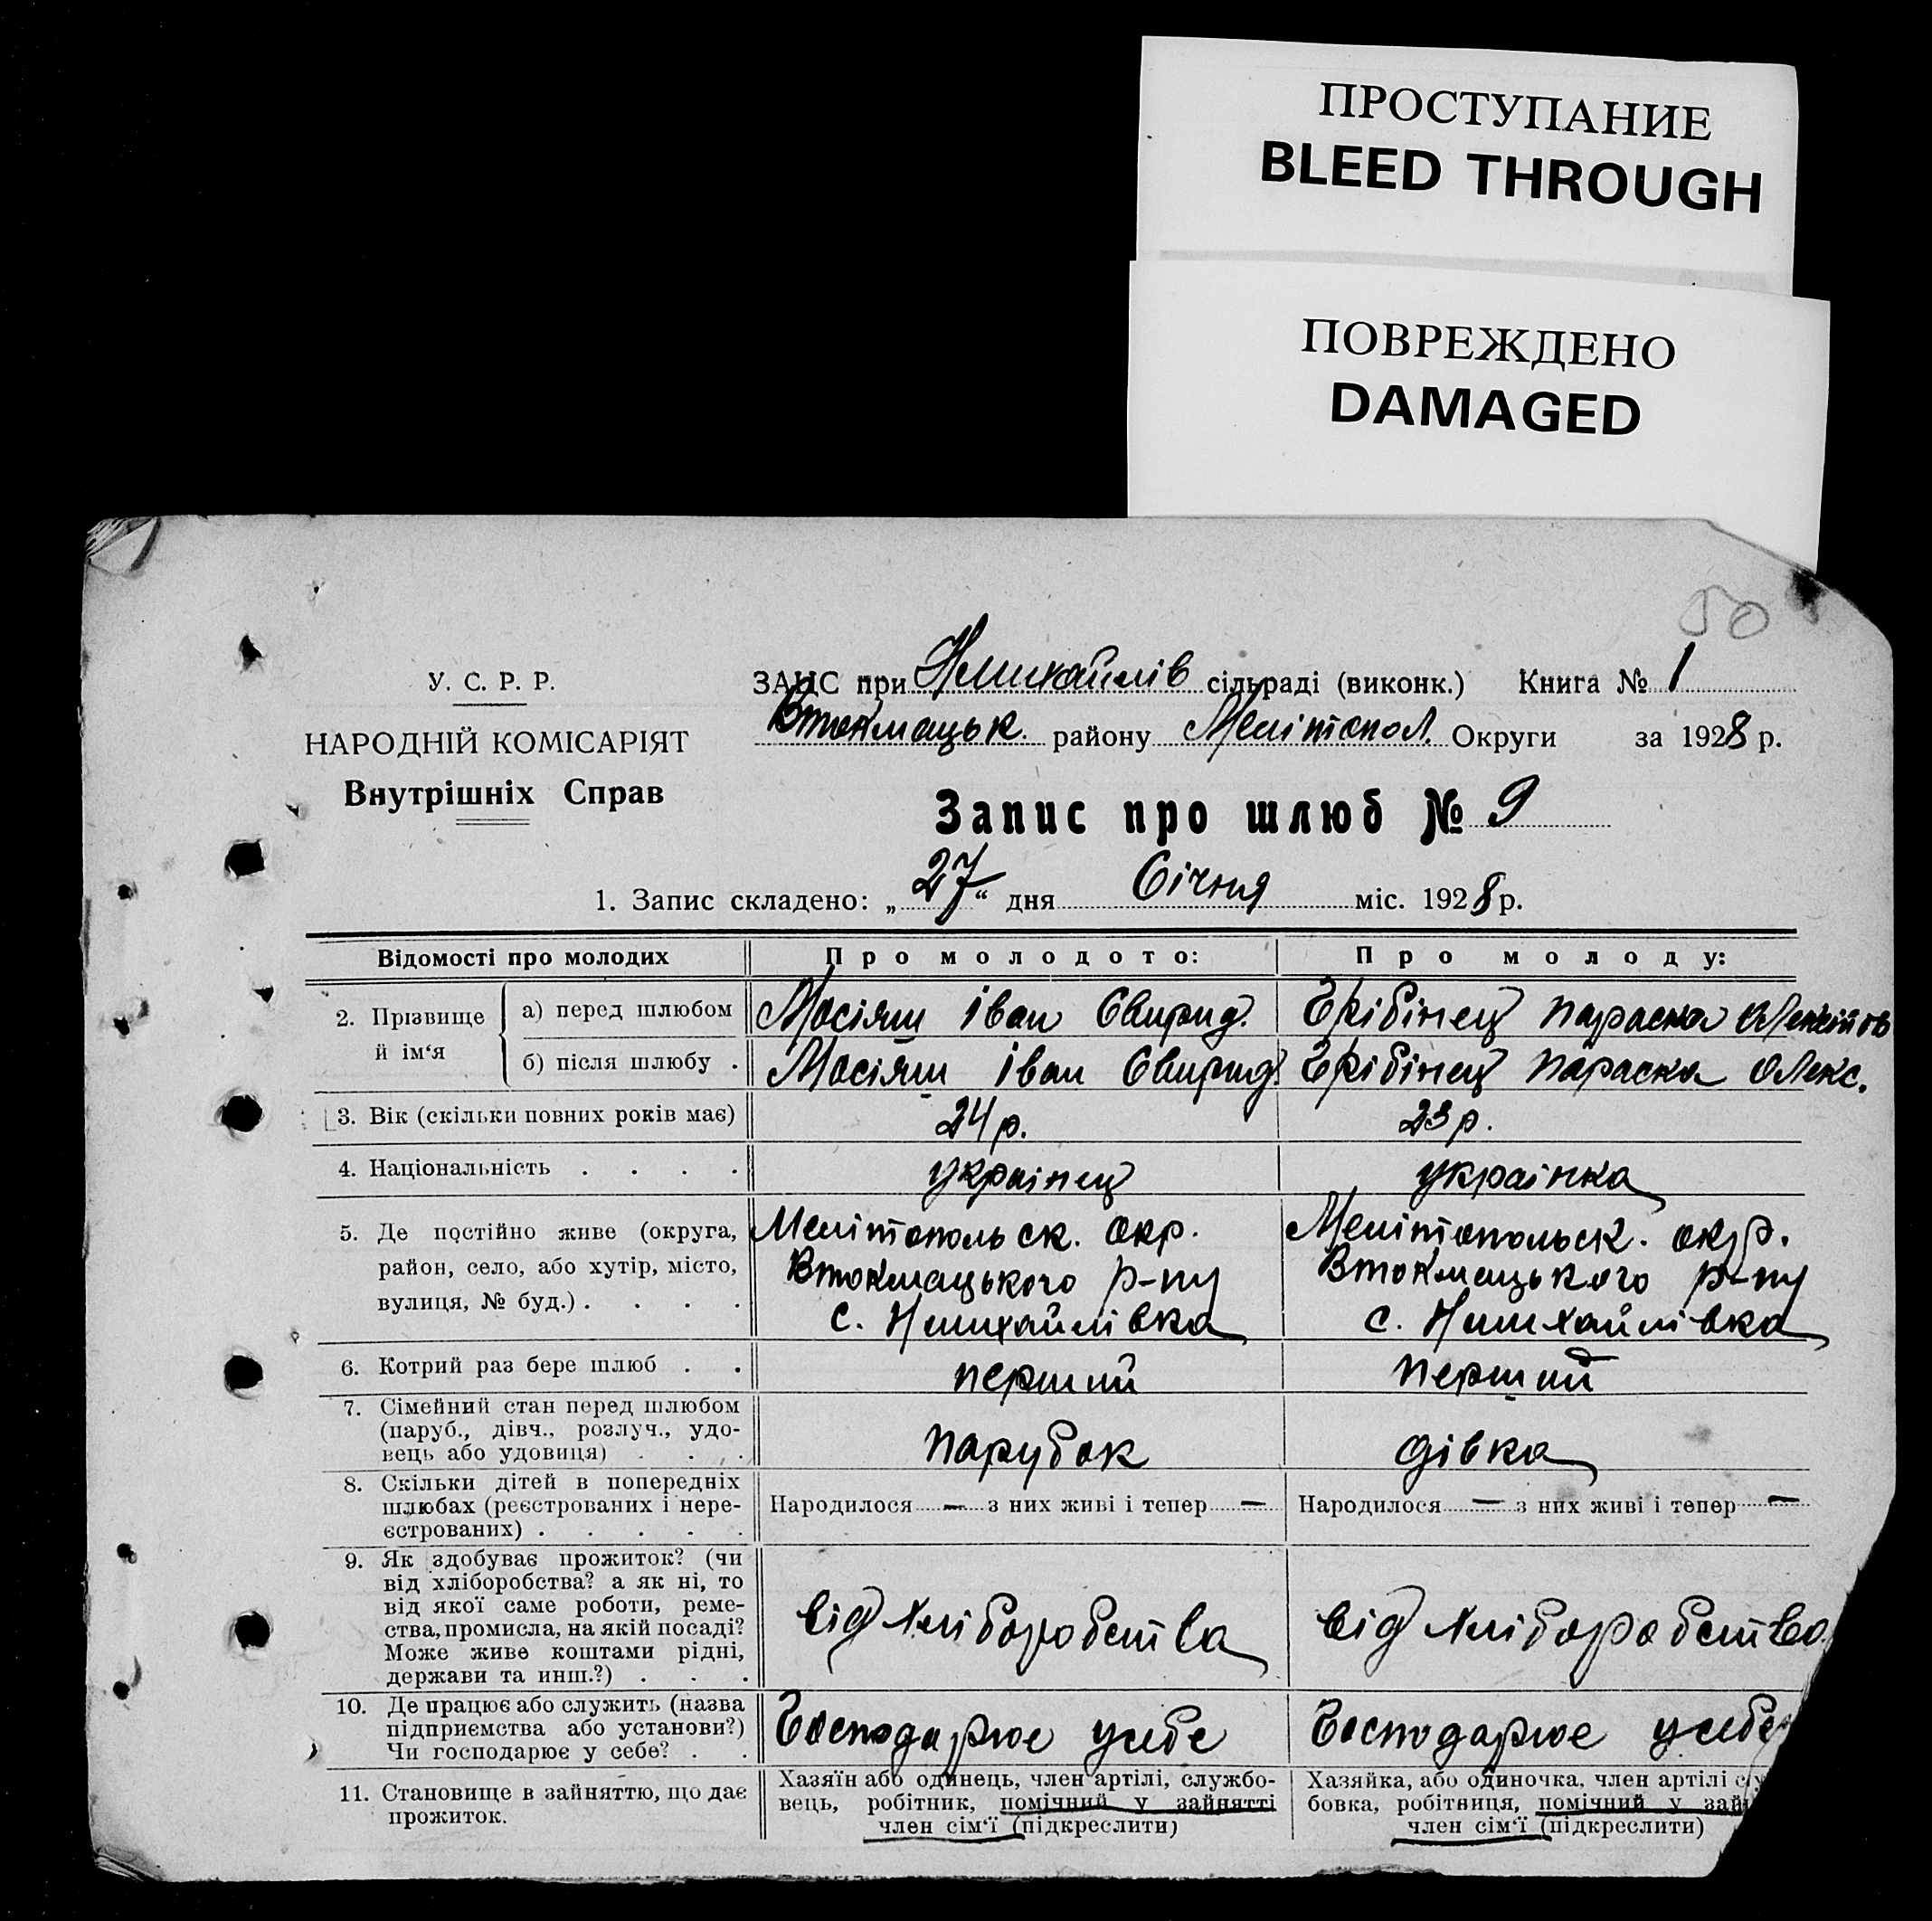 ПРОСТУПАНИЕ
BLEED THROUGH
ПОВРЕЖДЕНО
DAMAGED
50
У. С. Р. Р.
НАРОДНІЙ КОМІСАРІЯТ
Внутрішніх Справ
ЗАЦС при Нмихайлів сільраді (виконк.) Книга № 1
Втокмацьк. району Мелітопол. Округи за 1928 р.
Запис про шлюб № 9
1. Запис складено: „27“ дня Січня міс. 1928 р.
Відомості про молодих
Про молодого:
Про молоду:
2. Прізвище й ім‘я
а) перед шлюбом
Мосіяш Іван Свирид.
Грібінец Параска
б) після шлюбу .
Мосіяш Іван Свирид.
Грібінец Параска Олекс.
3. Вік (скільки повних років має)
24 р.
23 р.
4. Національність . . . .
украінец
украінка
5. Де постійно живе (округа,
район, село, або хутір, місто,
вулиця, № буд.) . . . .
Мелітопольск. окр.
Втокмацького р-ну
с. Нмихайлівка
Мелітопольск. окр.
Втокмацького р-ну
с. Нмихайлівка
6. Котрий раз бере шлюб . .
перший
перший
7. Сімейний стан перед шлюбом
(паруб., дівч., розлуч., удо-
вець або удовиця) . . .
парубок
дівка
8. Скільки дітей в попередніх
шлюбах (реєстрованих і нере-
єстрованих) . . . . .
Народилося — з них живі і тепер —
Народилося — з них живі і тепер —
9. Як здобуває прожиток? (чи
від хліборобства? а як ні, то
від якої саме роботи, реме-
ства, промисла, на якій посаді?
Може живе коштами рідні,
держави та инш.?) . . .
від хліборобства
від хліборобства
10. Де працює або служить (назва
підприємства або установи?)
Чи господарює у себе? . .
Господарює усебе
Господарює усебе
11. Становище в зайняттю, що дає
прожиток.
Хазяїн або одинець, член артілі, службо-
вець, робітник, помічний у зайнятті
член сім‘ї (підкреслити)
Хазяйка, або одиночка, член артілі слу
бовка, робітниця, помічний у зай
член сім‘ї (підкреслити)